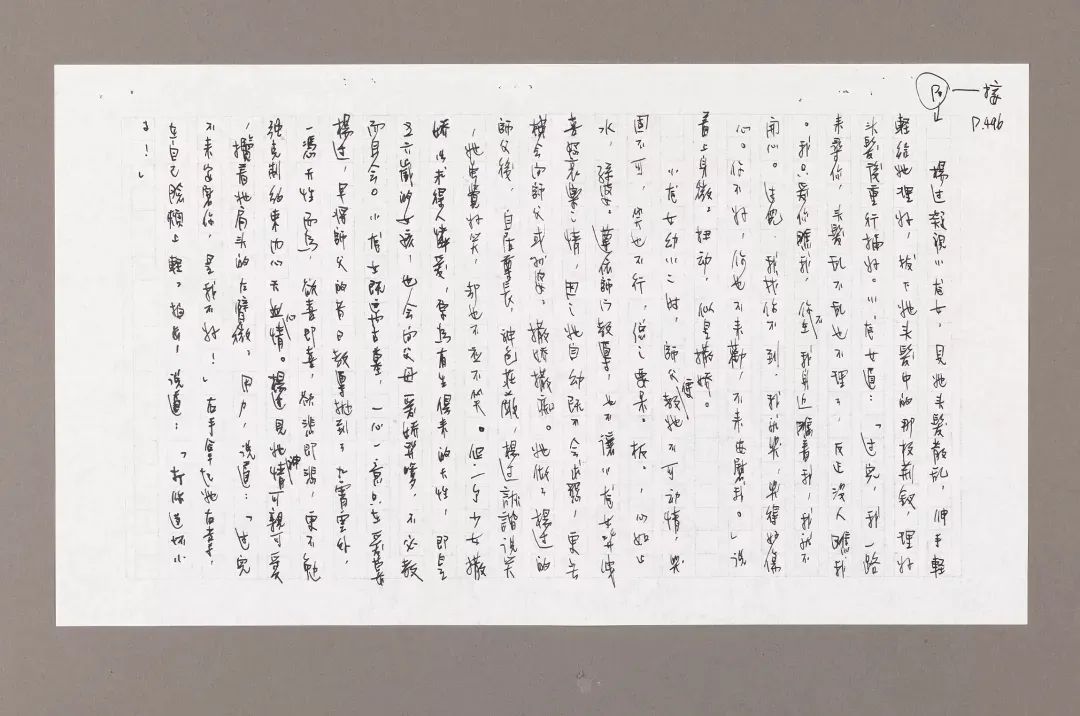 阿 — 接
P.446
楊過凝視小龍女，見她頭髮散亂，伸手輕
輕給她理好，拔下她頭髮中的那枝荊釵，理好
頭髮後重行插好。小龍女道：「過兒，我一路
來尋你，頭髮亂不亂也不理了，反正沒人瞧我
。我只愛你瞧我，你不在我身邊瞧着我，我就不
開心。過兒，我找你不到，我就哭，哭得好傷
心。你不好，你也不來勸，不來安慰我。」說
着上身微微扭動，似是撒嬌。
小龍女幼小之時，師父便教她不可動情，哭
固不可，笑也不行，總之要呆呆板板，心如止
水，孫婆婆遵依師門教導，也不讓小龍女哭叫
喜怒哀樂之情，因之她自幼既不會
橫會向師父或孫婆婆撒嬌撒癡。她做了楊過的
師父後，自居尊長，神色莊嚴，楊過詼諧說笑
，她雖覺好笑，卻也不去不笑。但一個少女撒
嬌以求得人憐愛，原為有生俱來的天性，即是
三六歲的女孩，也會向父母愛嬌發嗲，不必教
而自會。小龍女既遇古墓，一心一意只在愛慕
楊過，早將師父的昔日教導拋到了九霄雲外，
一憑天性而為，欲喜即喜，欲悲即悲，更不勉
強克制約束內心天然心情。楊過見她神情可親可愛
，攬着她肩頭的左臂微微用力，說道：「過兒
不來安慰你，是我不好！」右手拿起她右手，
在自己臉頰上輕輕拍去，說道：「打你這壞小
子！」